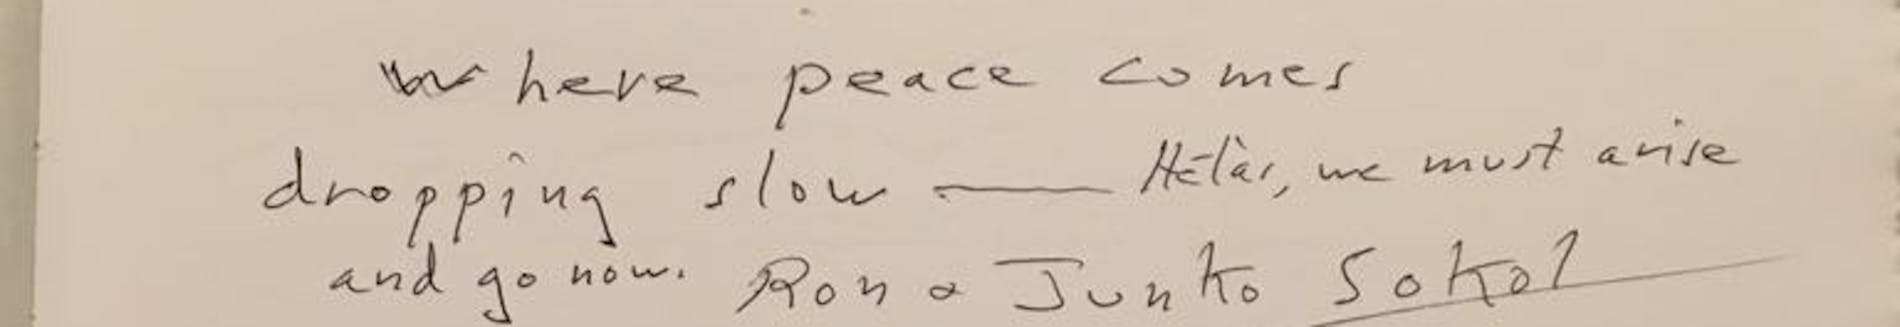 Where peace comes
dropping slow — Hélàs, we must arise
and go now. Ron & Junko Sokol